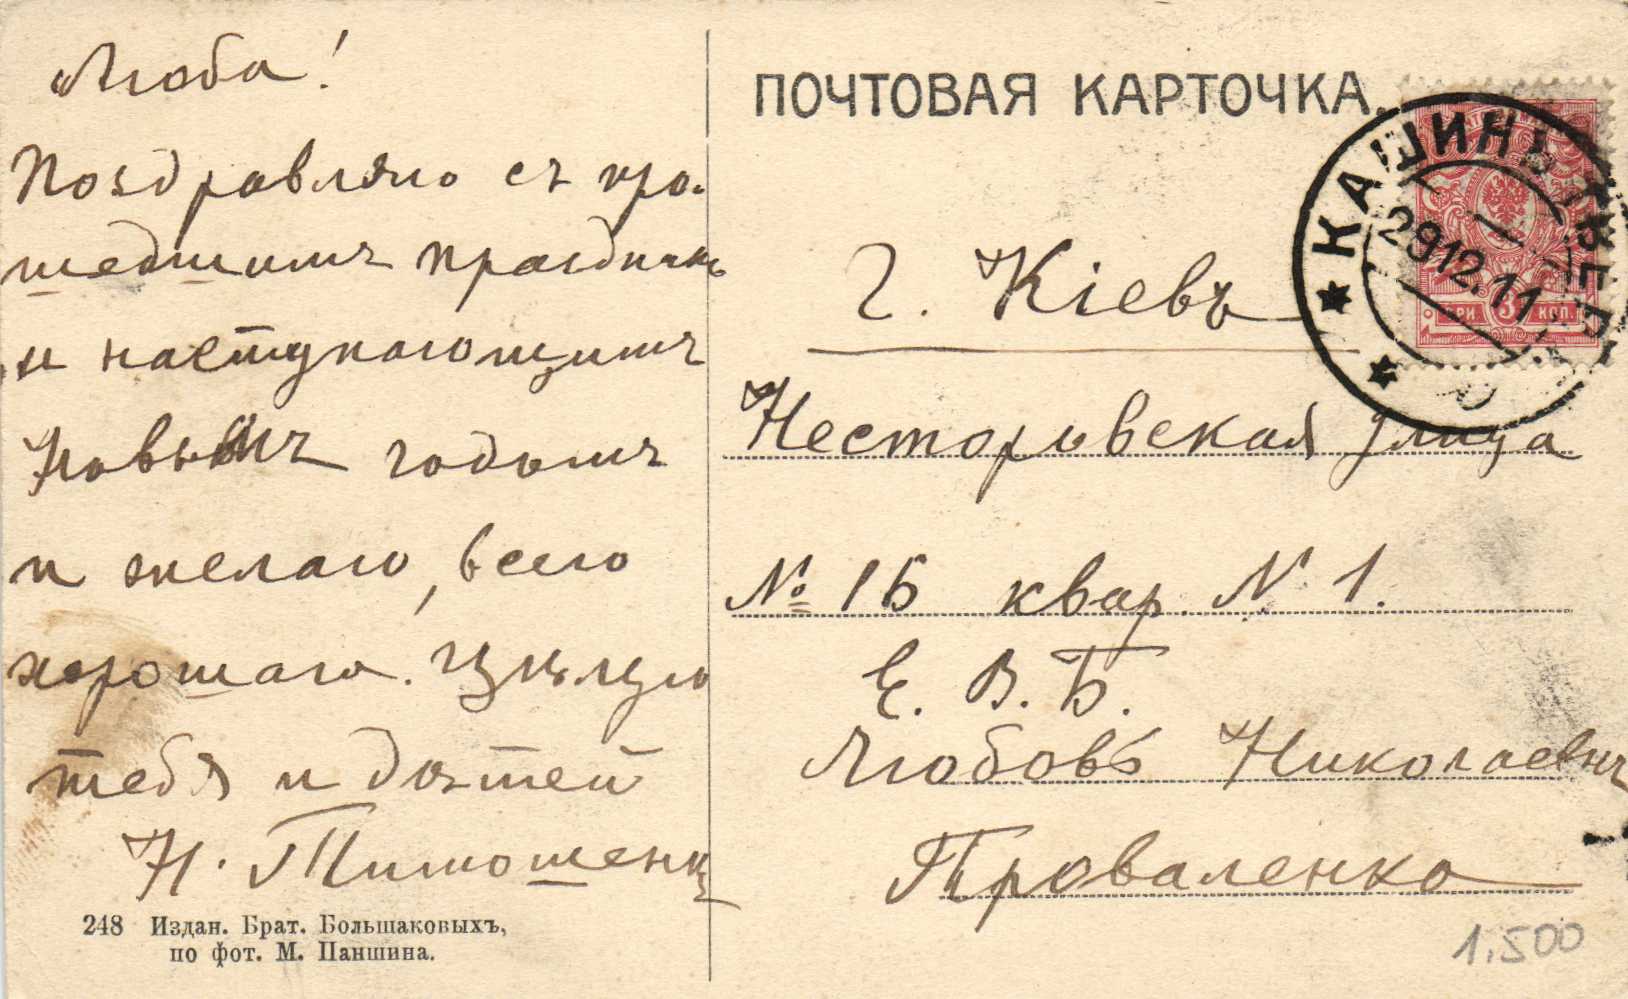 Люба!
Поздравляю съ про-
шедшимъ праздникъ
и наступающимъ
Новымъ годомъ
и желаю всего
хорошаго. Цѣлую
тебя и дѣтей
Н. Тимошенко
248 Издан. Брат. Большаковыхъ,
по фот. М. Паншина.
ПОЧТОВАЯ КАРТОЧКА.
КАШИНЪ ТВЕР.
29 12.11
ТРИ 3 КОП.
Г. Кіевъ
Несторовская улица
№ 15 квар. № 1.
Е. В. Б.
Любовь Николаевнѣ
Проваленко
1.500